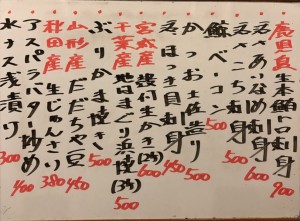 鹿児島産 生本鮪トロ刺身 900
活〆あいなめ刺身 600
活〆こち刺身 500
鯨ベーコン 600
かつお土佐造り 500
活ほっき貝刺身 450
宮城産 殻付生かき(2ケ) 600
千葉産 地はまぐり浜焼(3ケ) 500
ぶりかま焼き 500
山形産 だだちゃ豆 450
秋田産 生じゅんさい 380
アスパラバター炒め 400
水ナス浅漬り 300